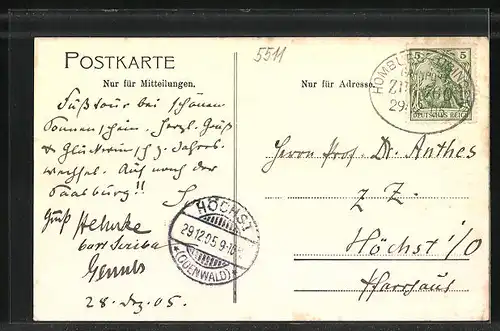 5511
POSTKARTE
Nur für Mitteilungen.
Fußtour bei schönem
Sonnenschein. Herzl. Gruß
& Glückwunsch z. Jahres
wechsel. Auf nach der
Saalburg!!
Gruß
28. Dez. 05.
Nur für Adresse.
HOMBURG
ZUG
29
5 5
DEUTSCHES REICH
Herrn Prof. Dr. Anthes
z. Z.
Höchst i/O
Pfarrhaus
HÖCHST
29.12.05.9-10
*(ODENWALD)*